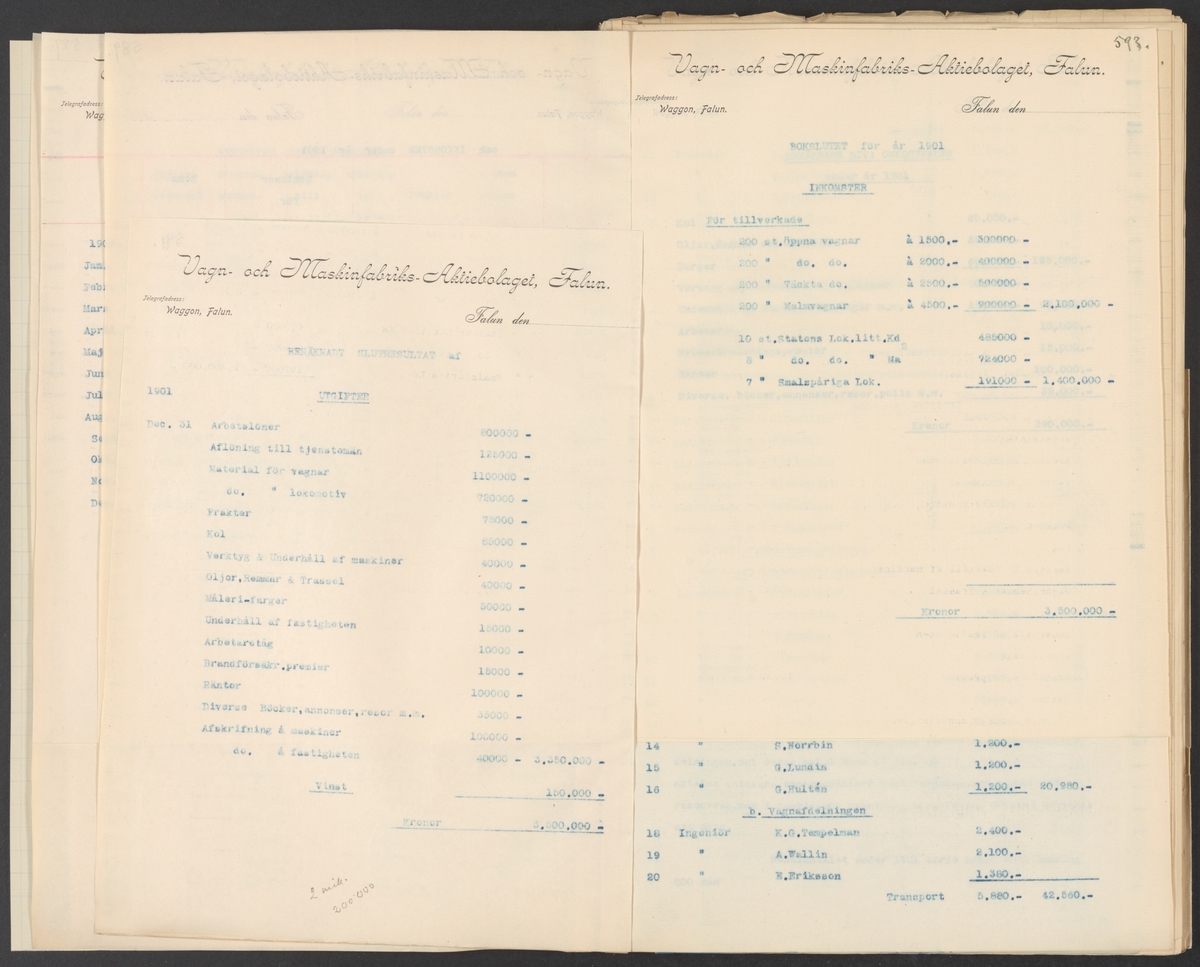 593.
Vagn- och Maskinfabriks-Aktiebolaget, Falun.
Telegrafadress:
Waggon, Falun.
Falun den
BOKSLUTET för år 1901
INKOMSTER
För tillverkade
200 st.öppna vagnar à 1500,- 300000 -
200 " do. do. à 2000,- 400000 -
200 " Täckta do. à 2500,- 500000 -
200 " Malmvagnar à 4500,- 900000 - 2,100,000 -
10 st.Statens Lok.litt.Kd 485000 -
8 " do. do. " Ma 724000 -
7 " Smalspåriga Lok. 191000 - 1,400,000 -
Kronor 3,500,000 -
Telegrafadress:
Wag
190
Janu
Feb
Mars
Apr
Maj
Jun
Jul
Aug
Se
Ok
No
De
Vagn- och Maskinfabriks-Aktiebolaget, Falun.
Telegrafadress:
Waggon, Falun.
Falun den
BERÄKNADT SLUTRESULTAT af
1901
UTGIFTER
Dec. 31 Arbetslöner 800000 -
Aflöning till tjenstemän 125000 -
Material för vagnar 1100000 -
do. " lokomotiv 720000 -
Frakter 75000 -
Kol 85000 -
Verktyg & Underhåll af maskiner 40000 -
Oljor,Remmar & Trassel 40000 -
Måleri-färger 50000 -
Underhåll af fastigheten 15000 -
Arbetaretåg 10000 -
Brandförsäkr.premier 15000 -
Räntor 100000 -
Diverse Böcker,annonser,resor m.m. 35000 -
Afskrifning å maskiner 100000 -
do. å fastigheten 40000 - 3,350,000 -
Vinst 150,000 -
Kronor 3,500,000 -
200.000
14 " S.Norrbin 1,200,-
15 " G.Lundin 1,200,-
16 " G.Hultén 1,200,- 20,980,-
b. Vagnafdelningen
18 Ingeniör K.G.Tempelman 2,400,-
19 " A.Wallin 2,100,-
20 " E.Erikson 1,380,-
Transport 5,880,- 42,560,-